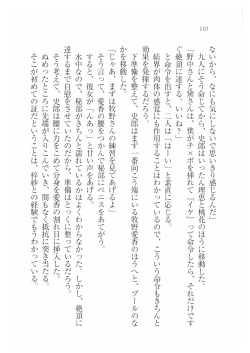 110
ないから、なにも気にしないで思いきり感じるんだ」
九人にそう命じてから、史郎はいったん理恵と桃花のほうに移動した。
「野中さんと黛さんは、僕がチ×ポを挿れて『イケ』って命令したら、それだけです
ぐ絶頂に達する。いいね?」
と命令を出すと、二人も「はーい」と素直に応じる。
結界が肉体の感覚にも作用することはわかっているので、こういう命令もきちんと
効果を発揮するだろう。
下準備を整えて、史郎はまず一番向こう端にいる牧野愛香のほうへと、プールのな
かを移動した。
「じゃあ、まずは牧野さんの練習を見てあげるよ」
そう言って、愛香の水着の股間をつかんで秘部にペニスをあてがう。
すると、彼女が「んあっ」と甘い声をあげる。
水中なので、秘部がきちんと濡れているかはよくわからなかった。しかし、絶頂に
達するまで自慰をさせていたのだから、準備はとっくに整っているだろう。
そう考えて、史郎は腰に力をこめて分身を愛香の割れ目に挿入した。
ぬめったところに先端が入りこんでいき、間もなく抵抗に突き当たる。
そこが初めての証なのは、梓紗との経験でもうわかっている。